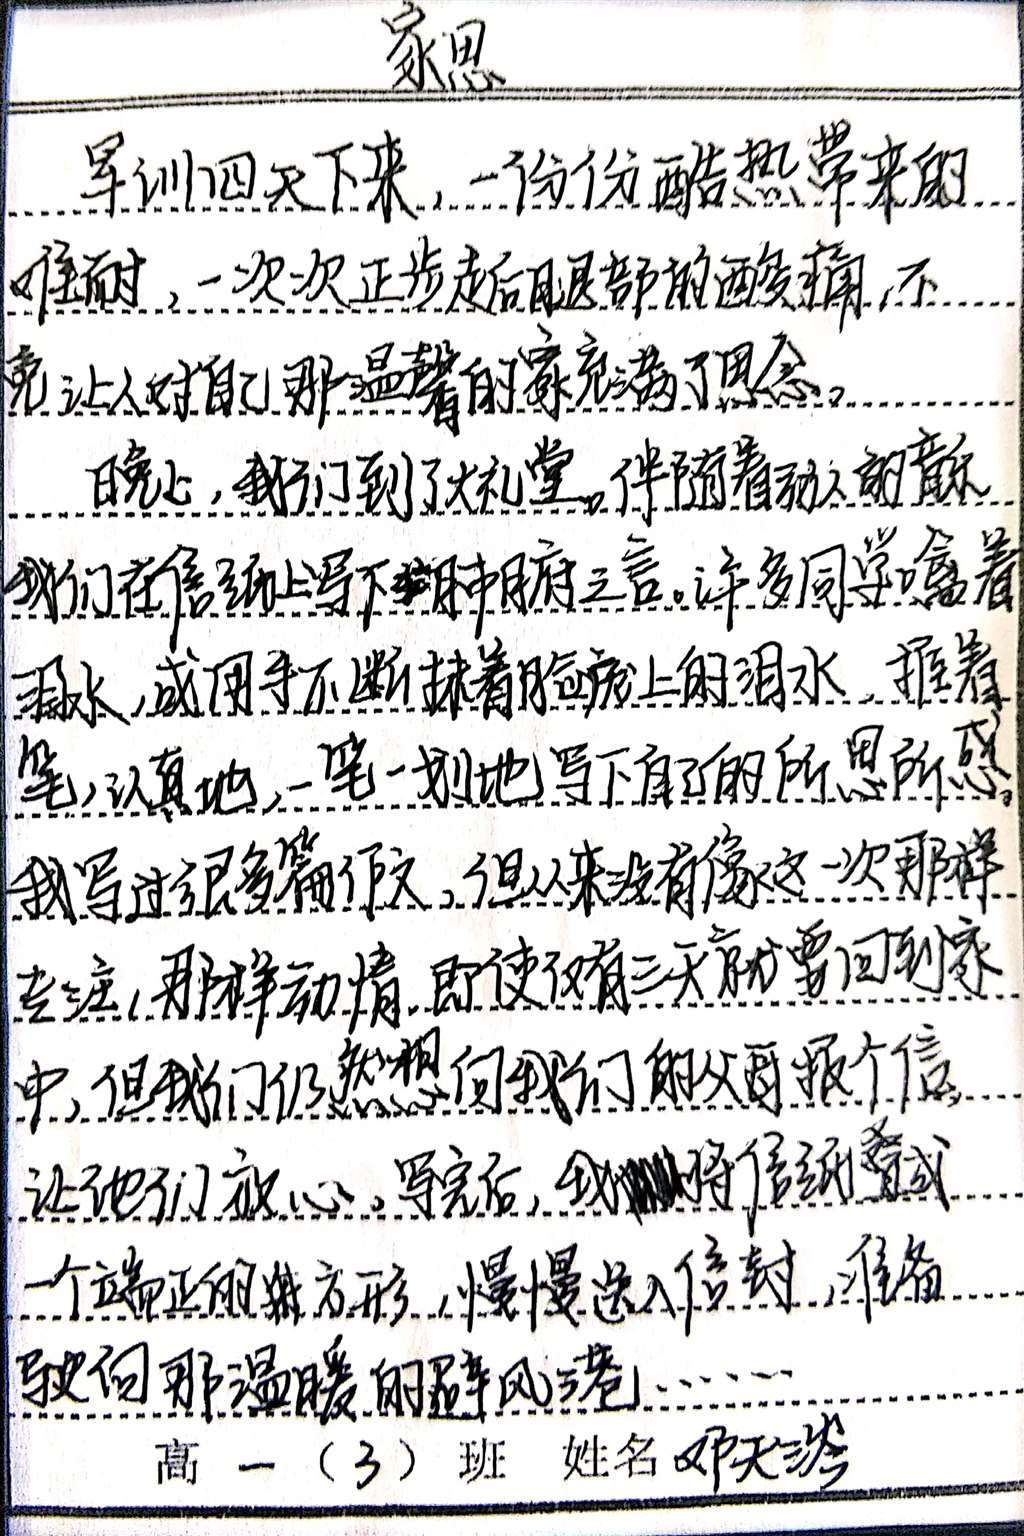 家思
军训四天下来，一份份酷热带来的
难耐，一次次正步走后腿部的酸痛，不
竟让人对自己那温馨的家充满了思念。
晚上，我们到了大礼堂。伴随着动人的音乐
我们在信纸上写下肺腑之言。许多同学噙着
泪水，或用手不断抹着脸庞上的泪水，握着
笔，认真地，一笔一划地写下自己的所思所感。
我写过很多篇作文，但从来没有像这一次那样
专注，那样动情。即使仅有三天就要回到家
中，但我们仍然想向我们的父母报个信，
让他们放心。写完后，我将信纸叠成
一个端正的长方形，慢慢送入信封，准备
驶向那温暖的避风港……
高一（3）班 姓名 邓天